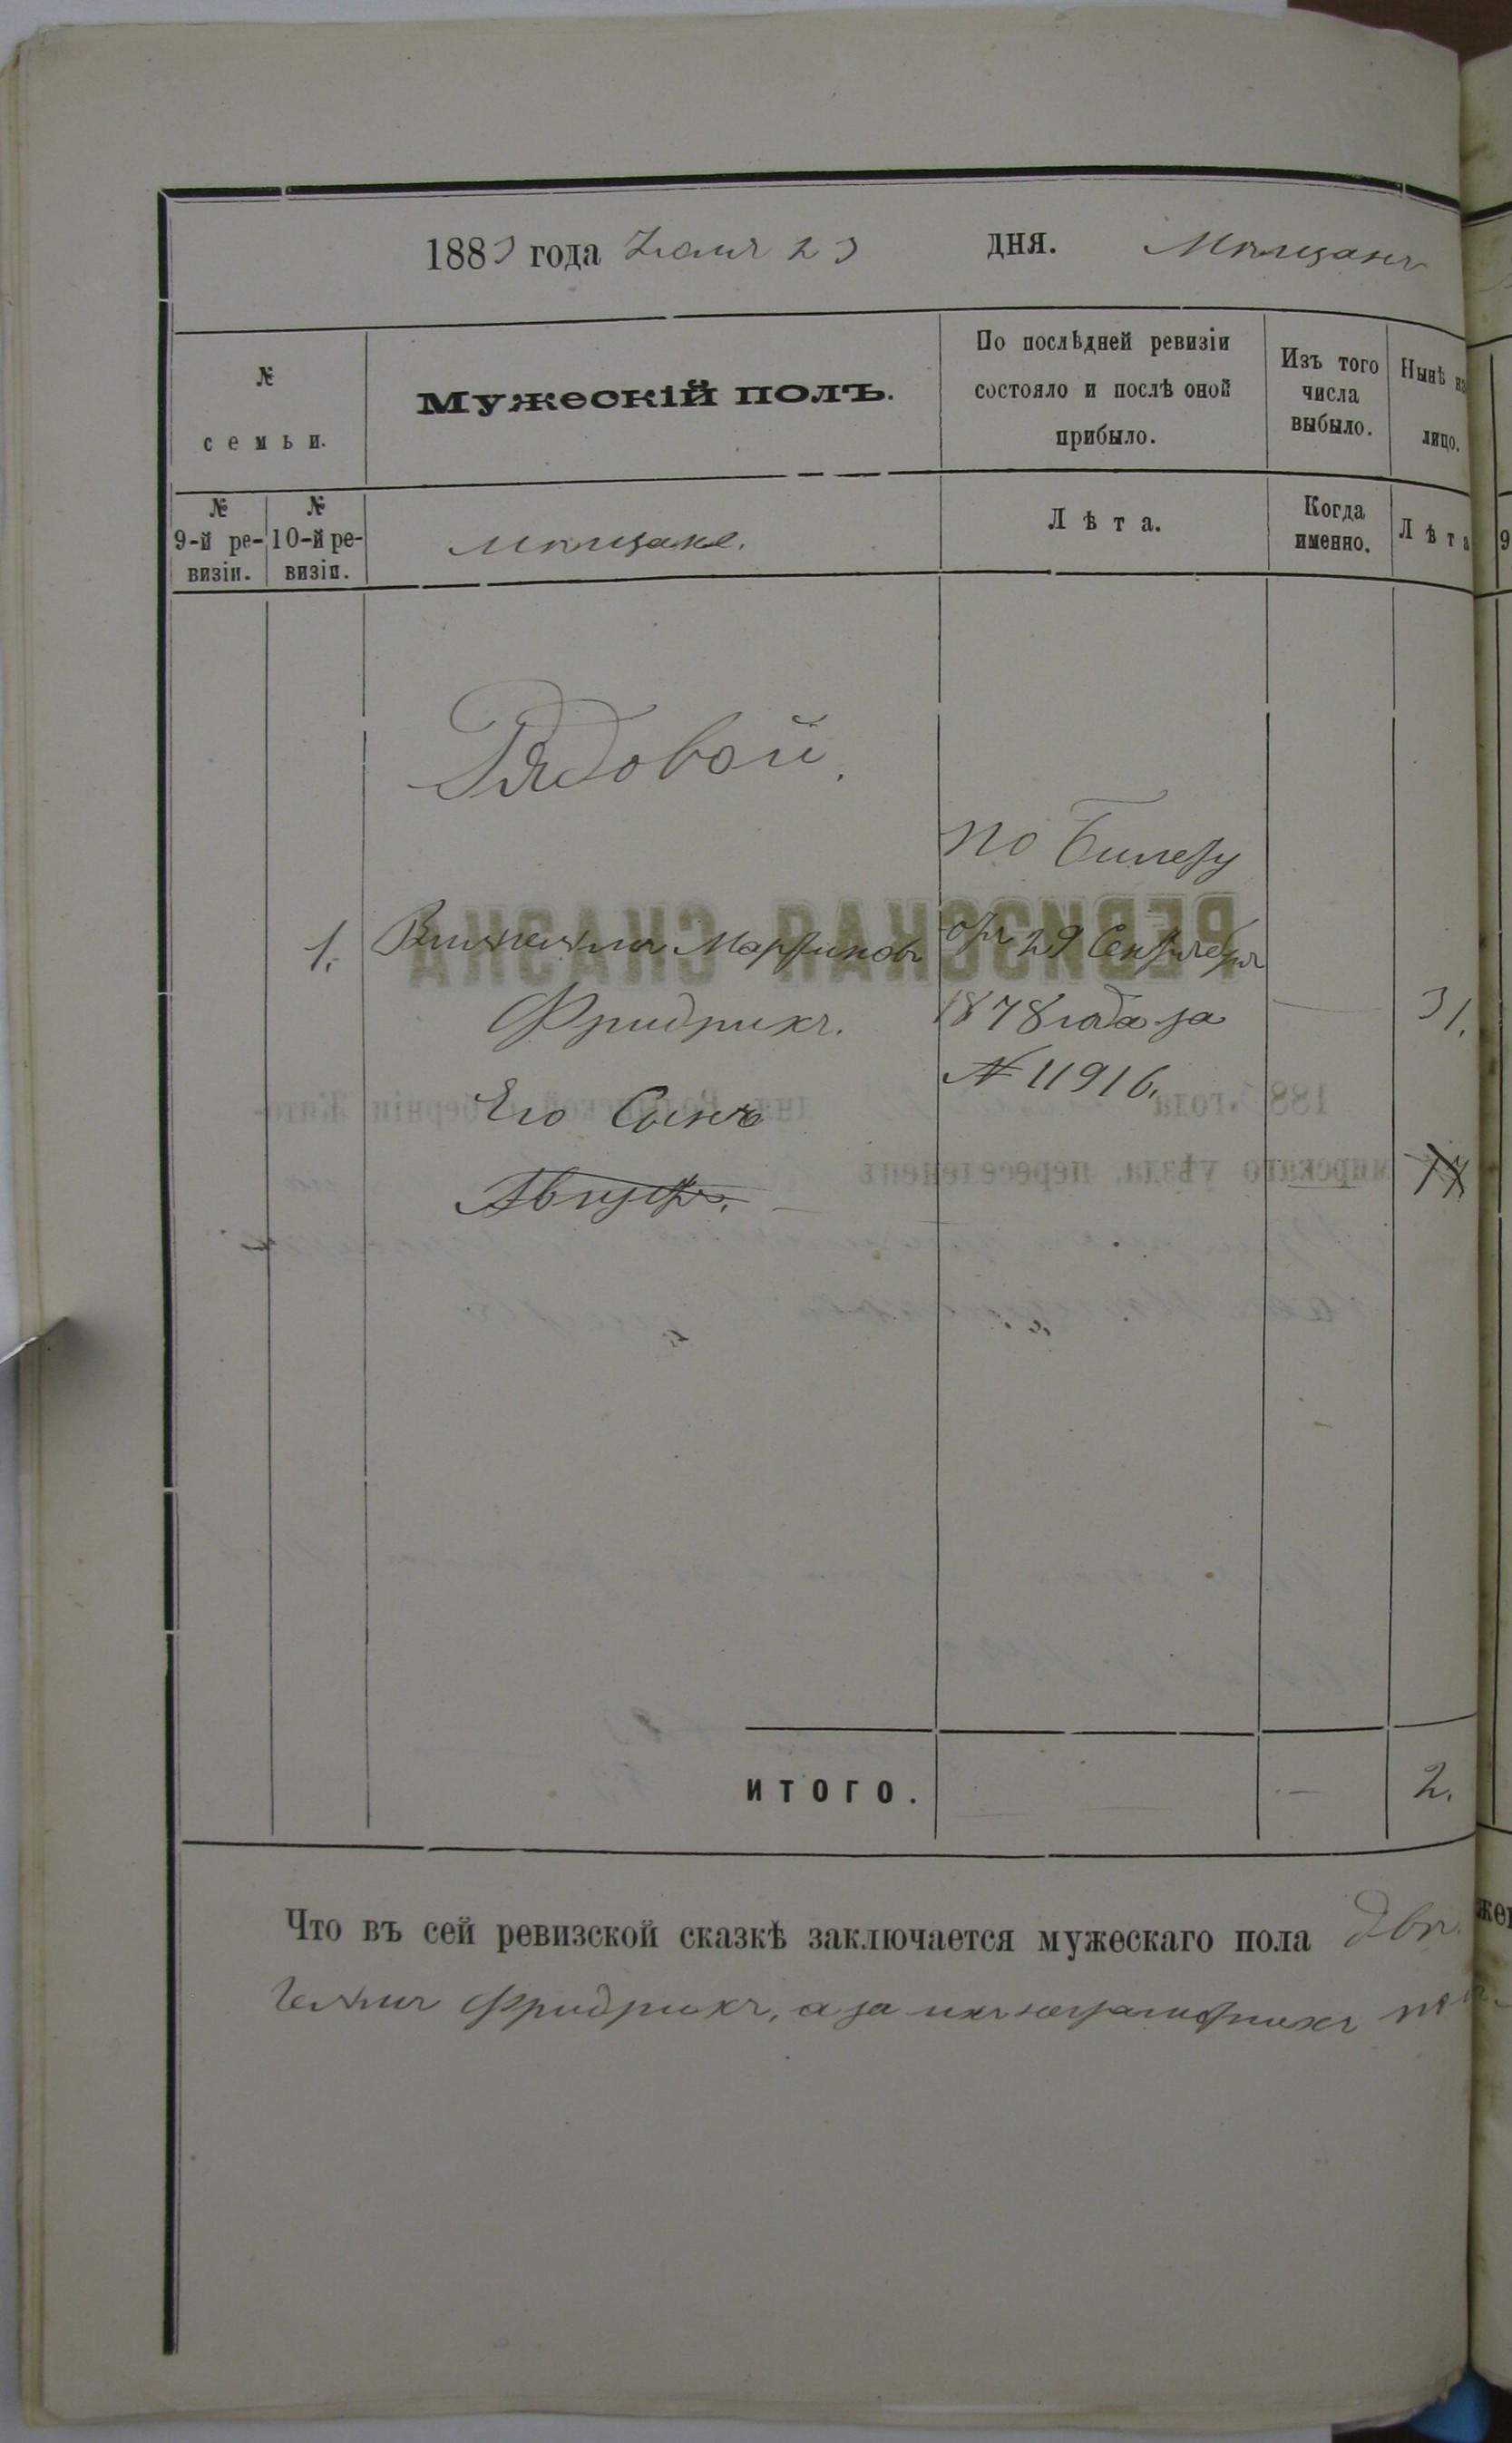 1883 года Июля 23 дня. Мѣщанъ
№ семьи.
Мужескій полъ.
По послѣдней ревизіи состояло и послѣ оной прибыло.
Изъ того числа выбыло.
Нынѣ на лицо.
№ 9-й ревизіи.
№ 10-й ревизіи.
Мѣщане.
Лѣта.
Когда именно.
Лѣта
Рядовой.
по билету
1. Вильгельмъ Мартиновъ отъ 29 Сентября
Фридрихъ. 1878 года за 31.
№ 11916.
Его Сынъ
Августъ.
РЕВИЗСКАЯ СКАЗКА
188 года дня Волынской губерніи Жито-
мирскаго уѣзда, переселенецъ
ИТОГО. 2.
Что въ сей ревизской сказкѣ заключается мужескаго пола двѣ
гельмъ Фридрихъ, а за